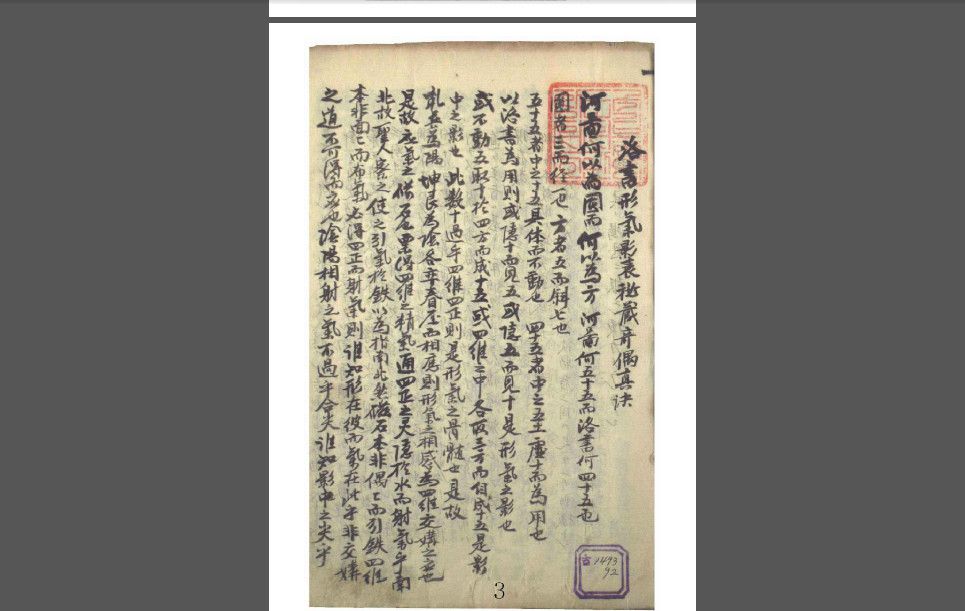 洛書形氣影表秘藏奇偶真訣
河圖何以為圓而何以為方 河圖何五十五而洛書何四十五也
圓者三而徑一也 方者五而斜七也
五十五者中之十五具体而不動也 四十五者中之五土虛十而為用也
以洛書為用則或隱十而見五或隱五而見十是形氣之影也
或不動五取十於四方而成十五或四維之中各取三方而自成十五是影
中之影也 此數十過乎四維四正則是形氣之骨髓也是故
乹 為陽坤艮為陰各 而相應則形氣之相感為四維交媾之 也
是故 氣之 石 得四維之精氣通四正之灵隱於水而射氣乎南
北故聖人 之使之引氣於鉄以為指南此然磁石本非偶〻而引鉄四維
本非面〻而布氣必得四正而射氣則誰知形在彼而氣在此乎非交媾
之道不可得而 也陰陽相射之氣不過乎合尖誰知影中之尖乎
1493
92
3